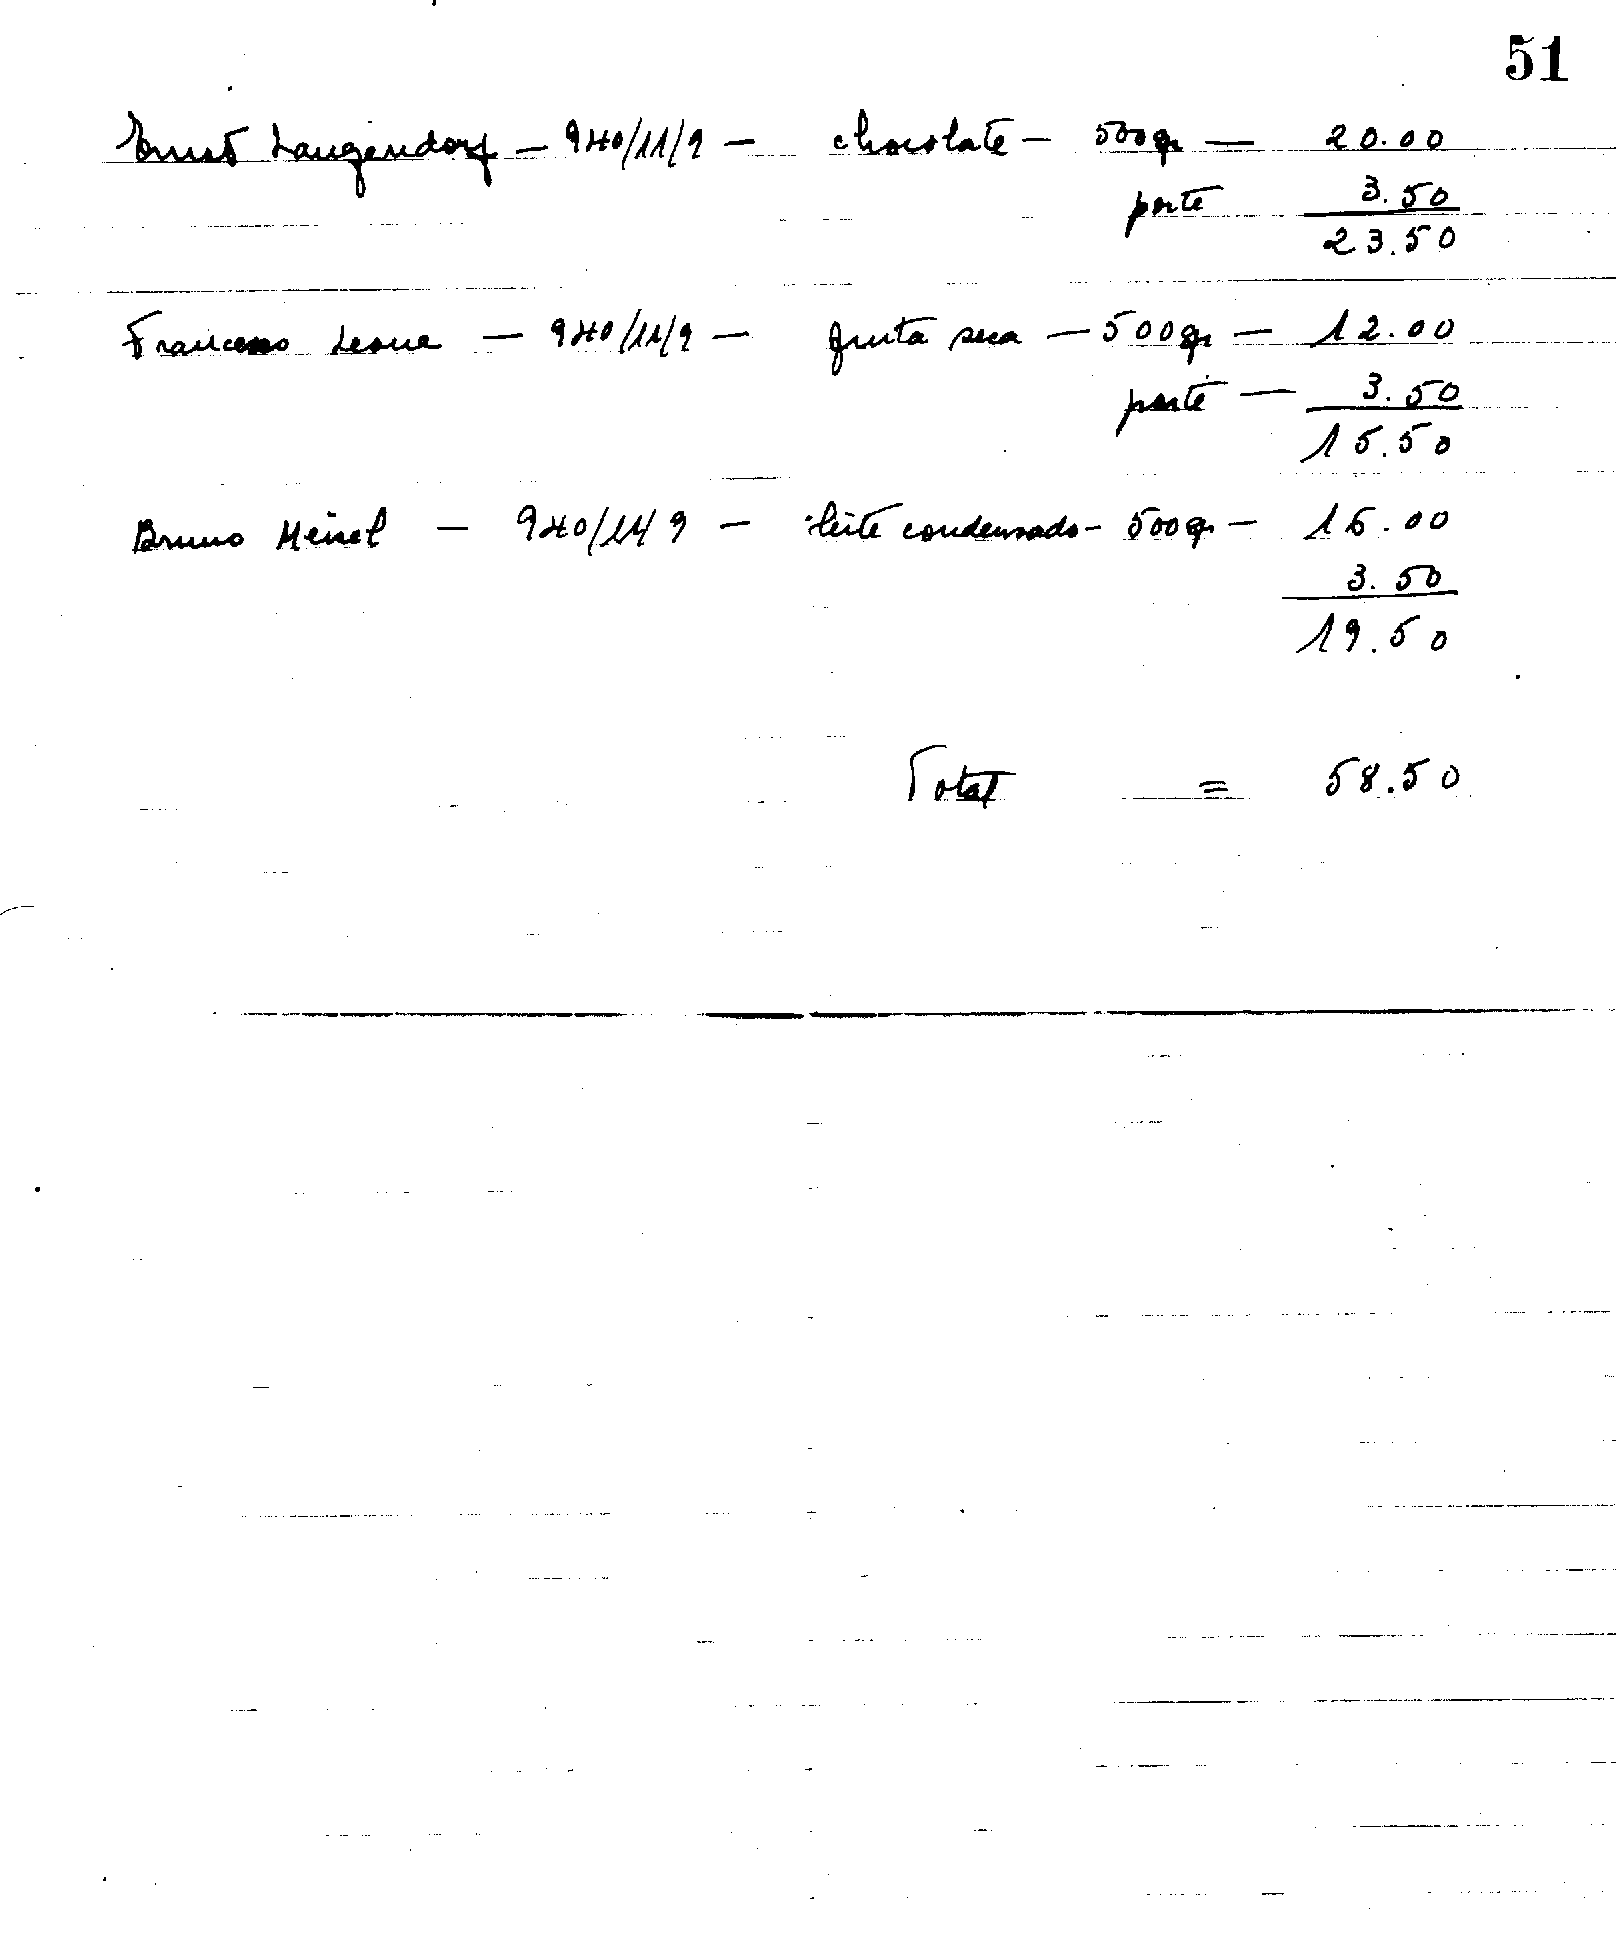 51
Ernst Langendorf - 940/11/9 - chocolate - 500gr - 20.00
porte 3.50
23.50
Francesco Leone - 940/11/9 - fruta seca - 500gr - 12.00
porte - 3.50
15.50
Bruno Meisel - 940/11/9 - leite condensado - 500gr - 16.00
3.50
19.50
Total = 58.50